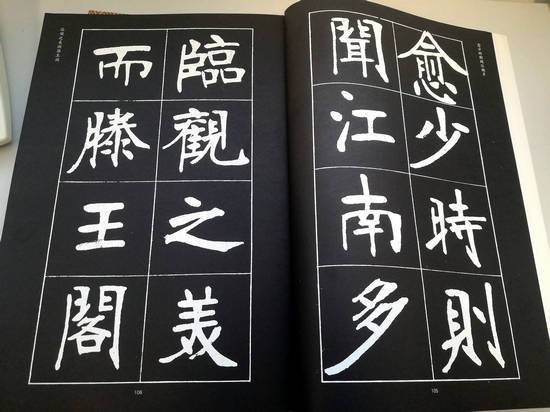 愈少時則
聞江南多
臨觀之美
而滕王閣
105
106